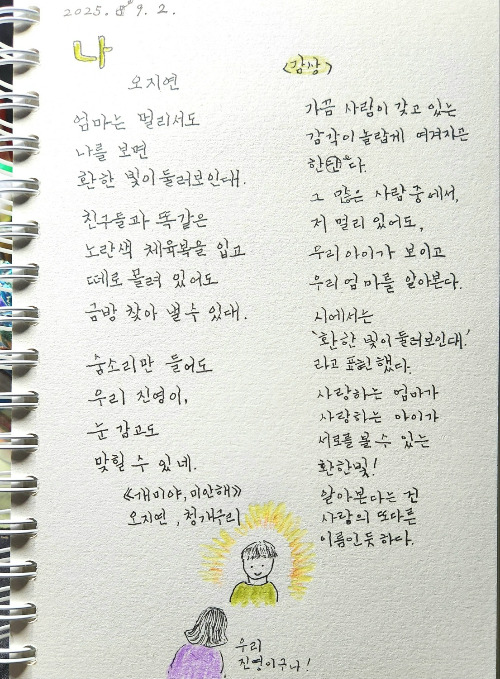 2025. 9. 2.
나
오지연
엄마는 멀리서도
나를 보면
환한 빛이 둘러보인대.
친구들과 똑같은
노란색 체육복을 입고
떼로 몰려 있어도
금방 찾아 낼 수 있대.
숨소리만 들어도
우리 진영이,
눈 감고도
맞힐 수 있네.
《개미야, 미안해》
오지연, 청개구리
<감상>
가끔 사람이 갖고 있는
감각이 놀랍게 여겨지곤
한다.
그 많은 사람 중에서,
저 멀리 있어도,
우리 아이가 보이고
우리 엄마를 알아본다.
시에서는
'환한 빛이 둘러보인대.'
라고 표현했다.
사랑하는 엄마가
사랑하는 아이가
서로를 볼 수 있는
환한 빛!
알아본다는 건
사랑의 또다른
이름인듯 하다.
우리
진영이구나!